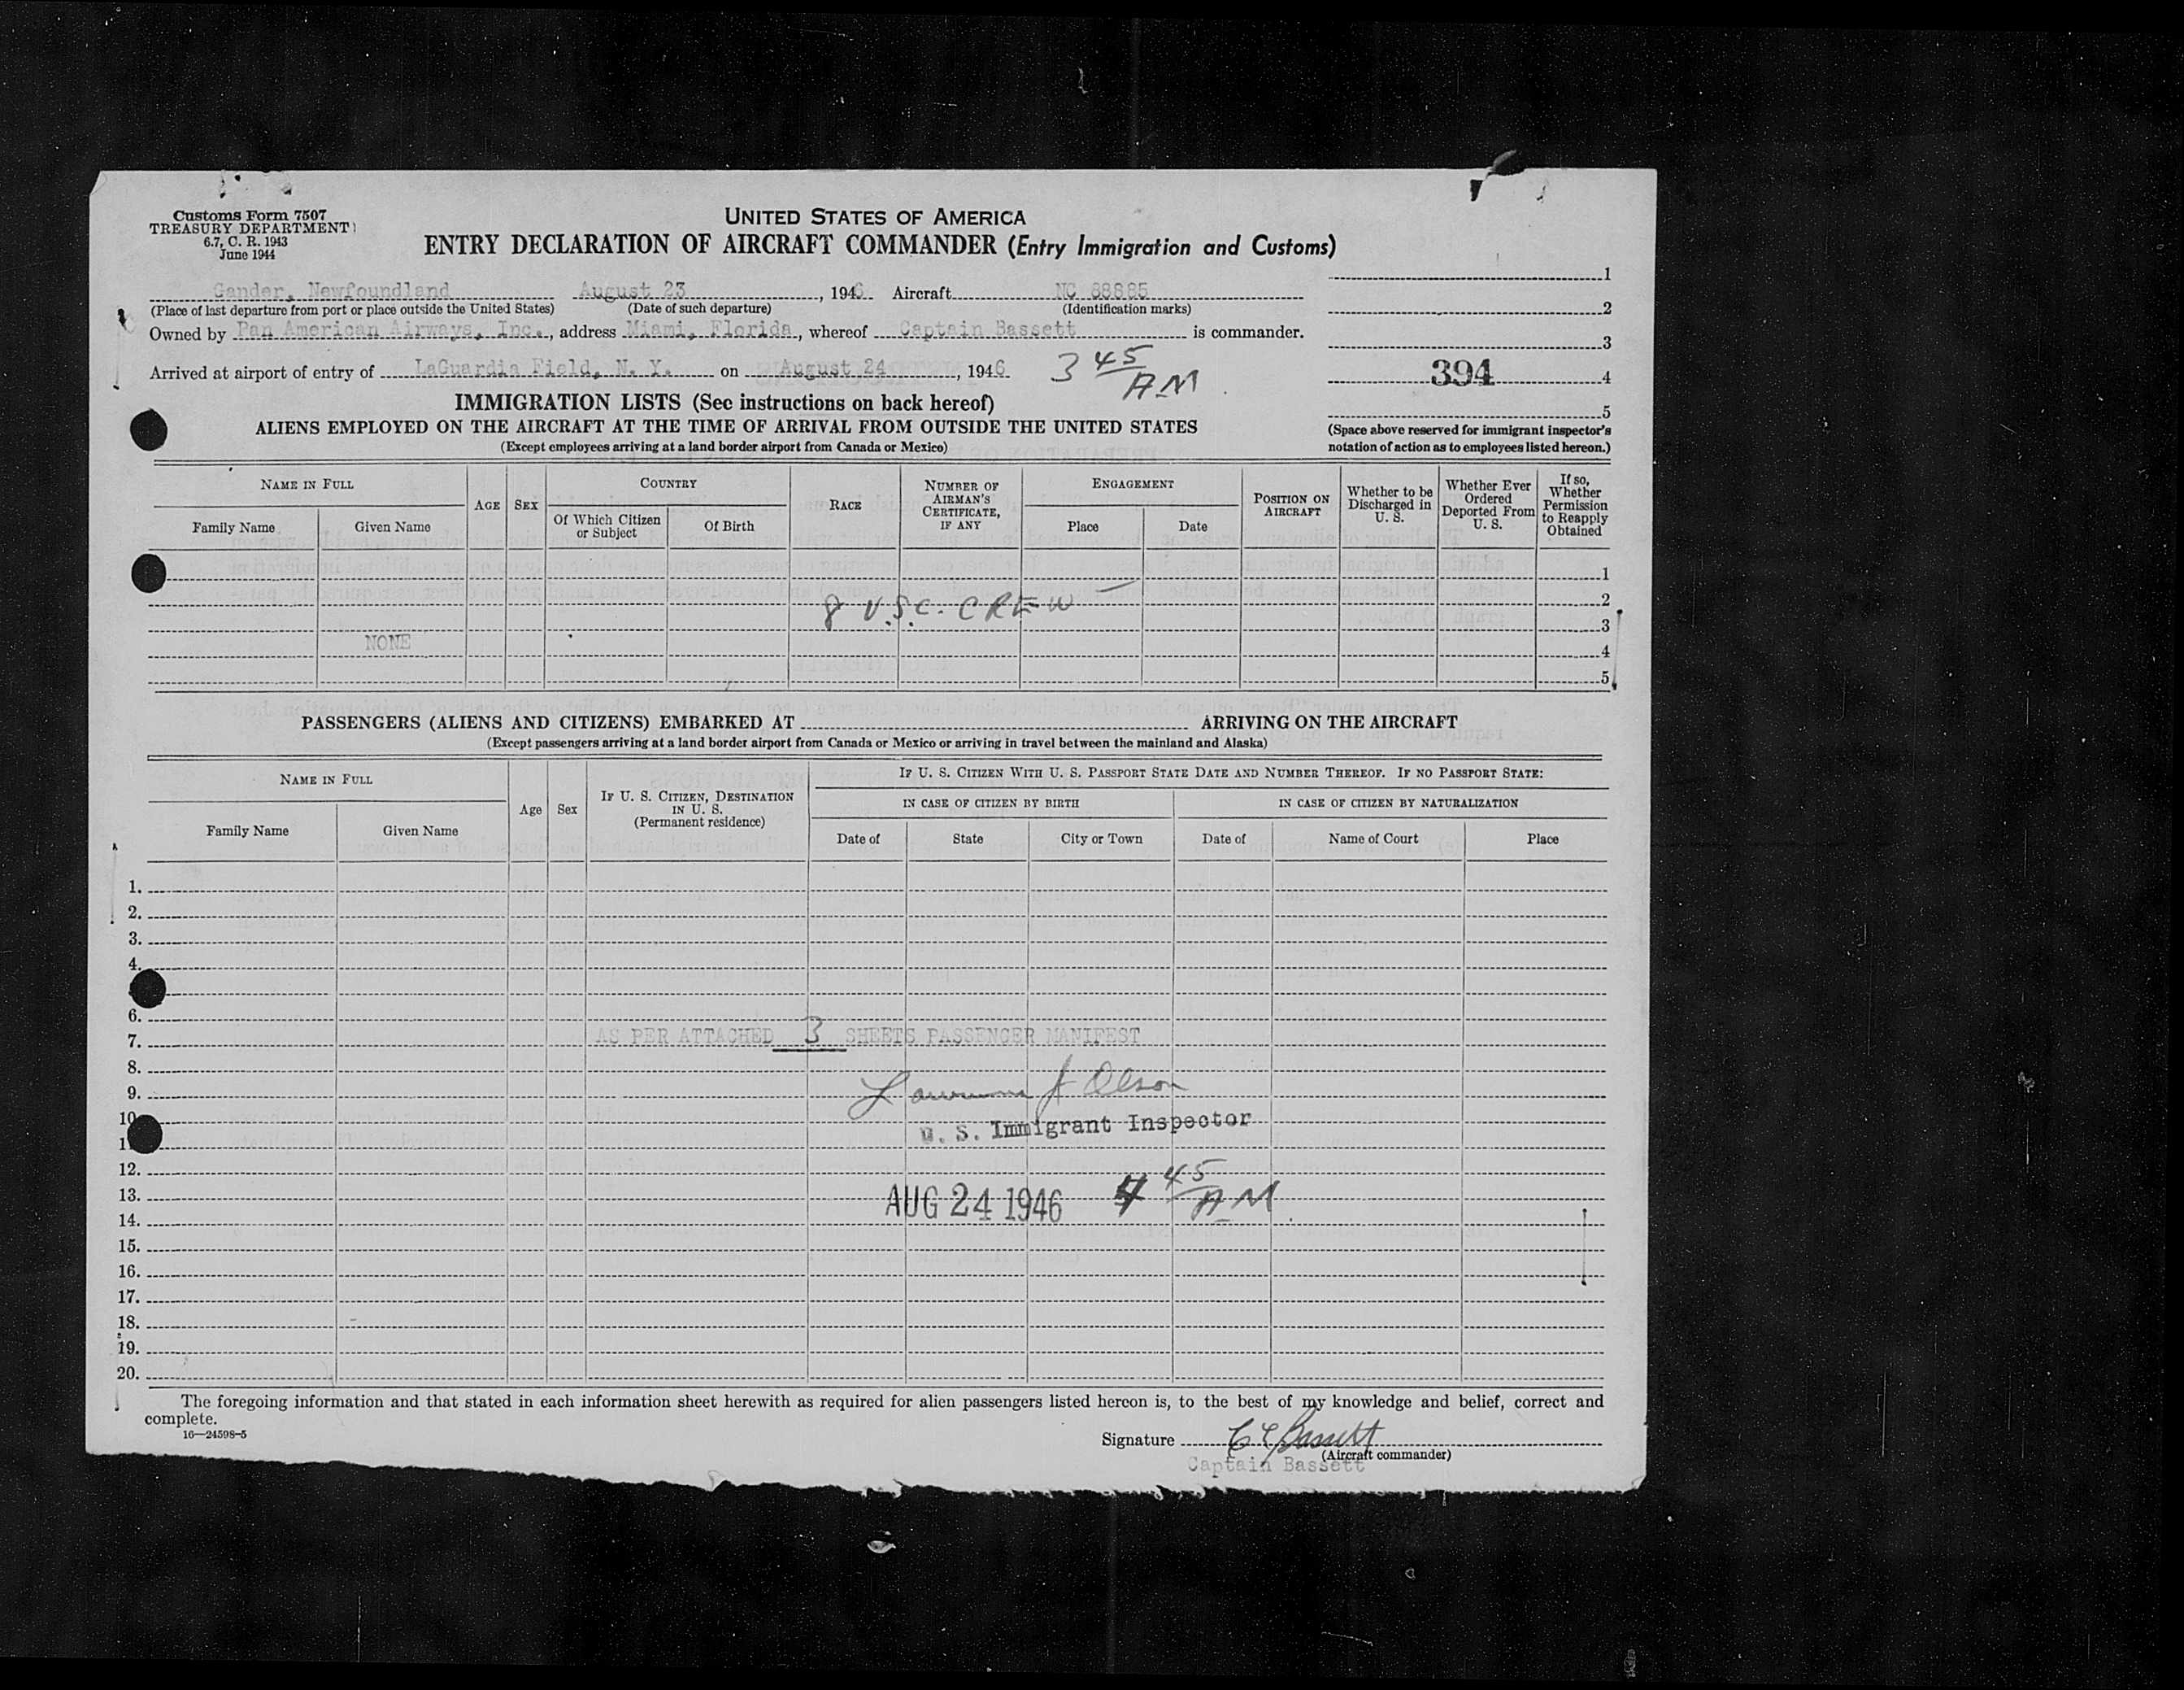 Customs Form 7507
TREASURY DEPARTMENT
6.7, C. R. 1943
June 1944
UNITED STATES OF AMERICA
ENTRY DECLARATION OF AIRCRAFT COMMANDER (Entry Immigration and Customs)
Gander, Newfoundland August 23, 1946 Aircraft NC 88885
(Place of last departure from port or place outside the United States) (Date of such departure) (Identification marks)
Owned by Pan American Airways, Inc., address Miami, Florida, whereof Captain Bassett is commander.
Arrived at airport of entry of LaGuardia Field, N. Y. on August 24, 1946 3 45 AM
1
2
3
394 4
5
(Space above reserved for immigrant inspector's
notation of action as to employees listed hereon.)
IMMIGRATION LISTS (See instructions on back hereof)
ALIENS EMPLOYED ON THE AIRCRAFT AT THE TIME OF ARRIVAL FROM OUTSIDE THE UNITED STATES
(Except employees arriving at a land border airport from Canada or Mexico)
NAME IN FULL
Family Name
Given Name
AGE
SEX
COUNTRY
Of Which Citizen
or Subject
Of Birth
RACE
NUMBER OF
AIRMAN'S
CERTIFICATE,
IF ANY
ENGAGEMENT
Place
Date
POSITION ON
AIRCRAFT
Whether to be
Discharged in
U. S.
Whether Ever
Ordered
Deported From
U. S.
If so,
Whether
Permission
to Reapply
Obtained
1
8 U.S.C. CREW — 2
3
NONE 4
5
PASSENGERS (ALIENS AND CITIZENS) EMBARKED AT ARRIVING ON THE AIRCRAFT
(Except passengers arriving at a land border airport from Canada or Mexico or arriving in travel between the mainland and Alaska)
NAME IN FULL
Family Name
Given Name
Age
Sex
IF U. S. CITIZEN, DESTINATION
IN U. S.
(Permanent residence)
IF U. S. CITIZEN WITH U. S. PASSPORT STATE DATE AND NUMBER THEREOF. IF NO PASSPORT STATE:
IN CASE OF CITIZEN BY BIRTH
IN CASE OF CITIZEN BY NATURALIZATION
Date of
State
City or Town
Date of
Name of Court
Place
1.
2.
3.
4.
6.
7. AS PER ATTACHED 3 SHEETS PASSENGER MANIFEST
8.
9. Lawrence J Olson
10
1
U. S. Immigrant Inspector
12.
13. AUG 24 1946 4 45 AM
14.
15.
16.
17.
18.
19.
20.
The foregoing information and that stated in each information sheet herewith as required for alien passengers listed hereon is, to the best of my knowledge and belief, correct and
complete.
16—24598-5
Signature C E Bassett
(Aircraft commander)
Captain Bassett